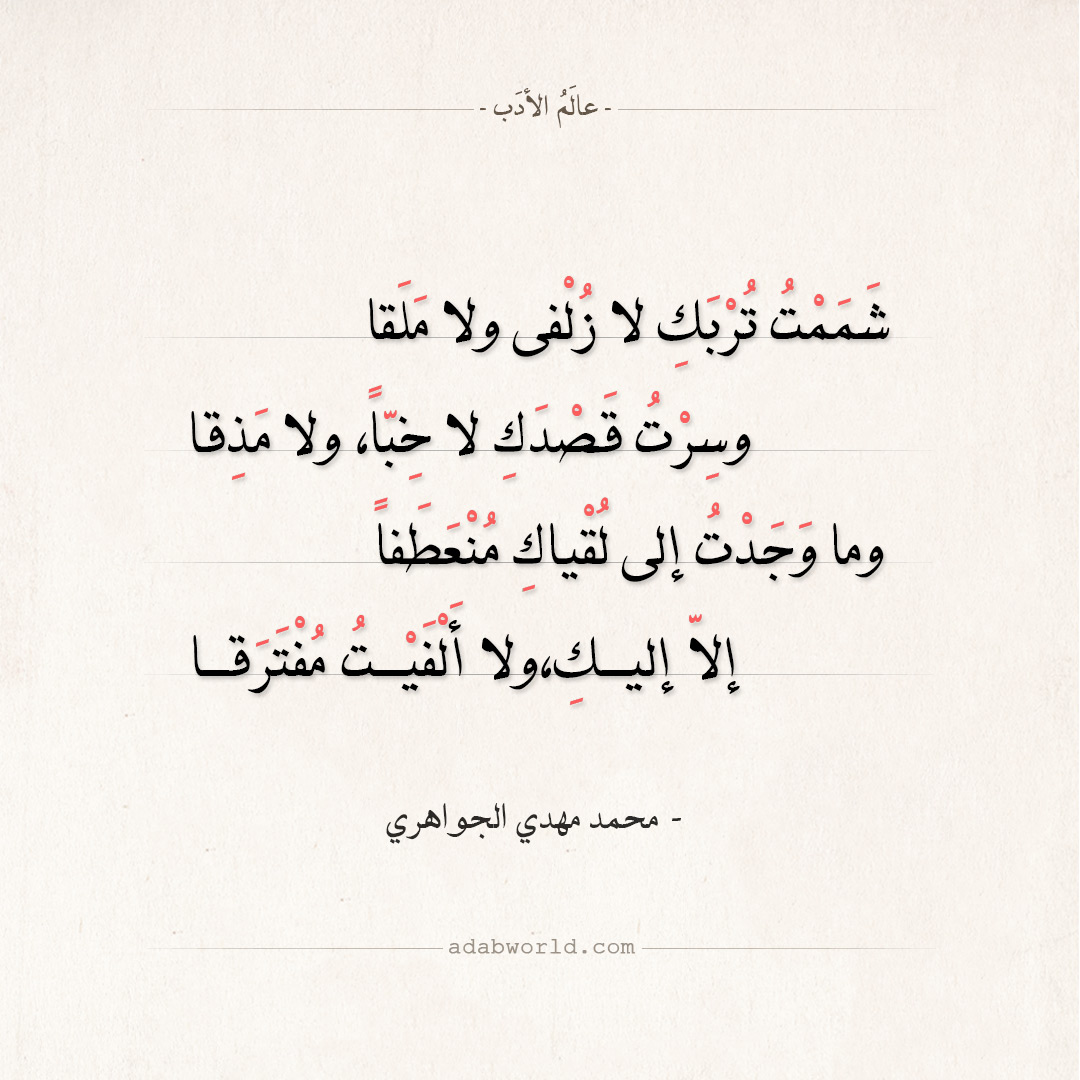 - عالَمُ الأدَب -
شَمَمْتُ تُرْبَكِ لا زُلْفى ولا مَلَقا
وسِرْتُ قَصْدَكِ لا خِبّاً، ولا مَذِقا
وما وَجَدْتُ إلى لُقْياكِ مُنْعَطَفاً
إلاّ إليــكِ،ولا أَلْفَيْــتُ مُفْتَرَقــا
- محمد مهدي الجواهري
adabworld.com